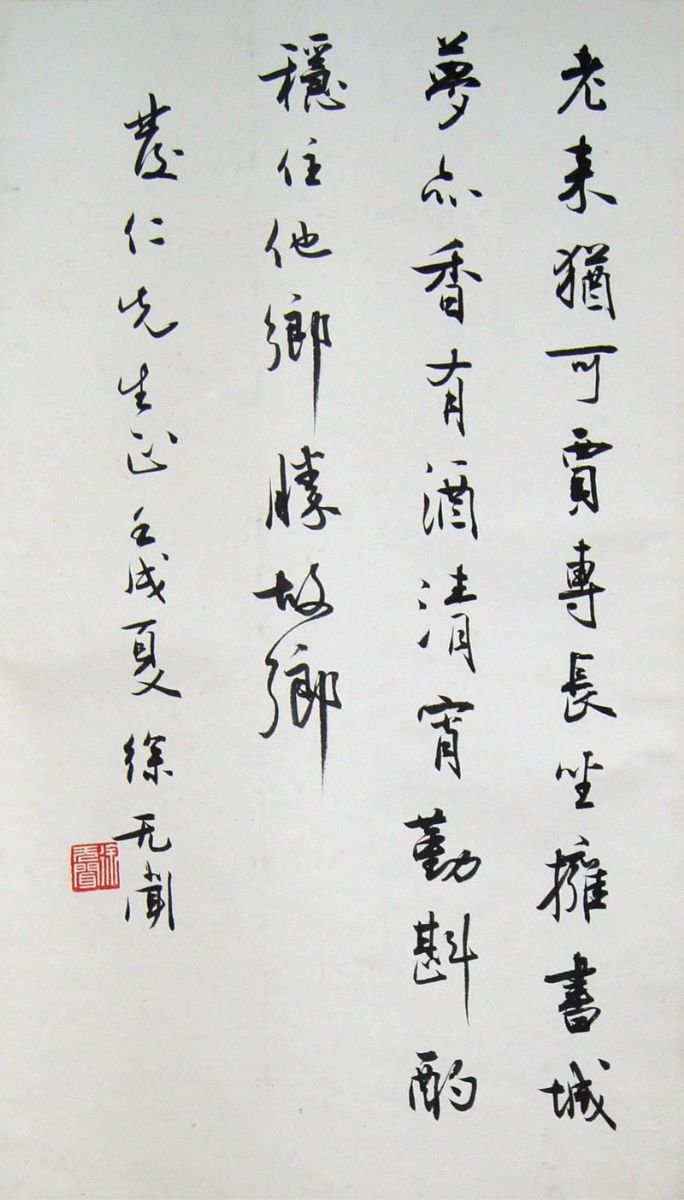 老来猶可賈專長坐擁書城
夢亦香有酒清宵勤斟酌
穩住他鄉勝故鄉
仁先生正壬戌夏徐无聞
徐无聞